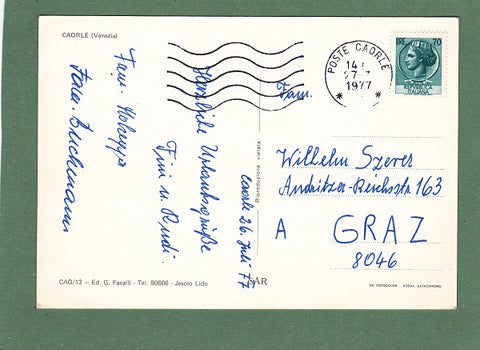 CAORLE (Venezia)
Caorle 26. Juli 77
Herzliche Urlaubsgrüße
Fini u. Rudi.
Fam.
Fam.
POSTE CAORLE
14
27-7
1977
70
Fam.
Wilhelm Szever
Andritzer-Reichsstr 163
A GRAZ
8046
Riproduzione vietata
CAO/12 – Ed. G. Favalli - Tel. 90666 - Jesolo Lido
SAR